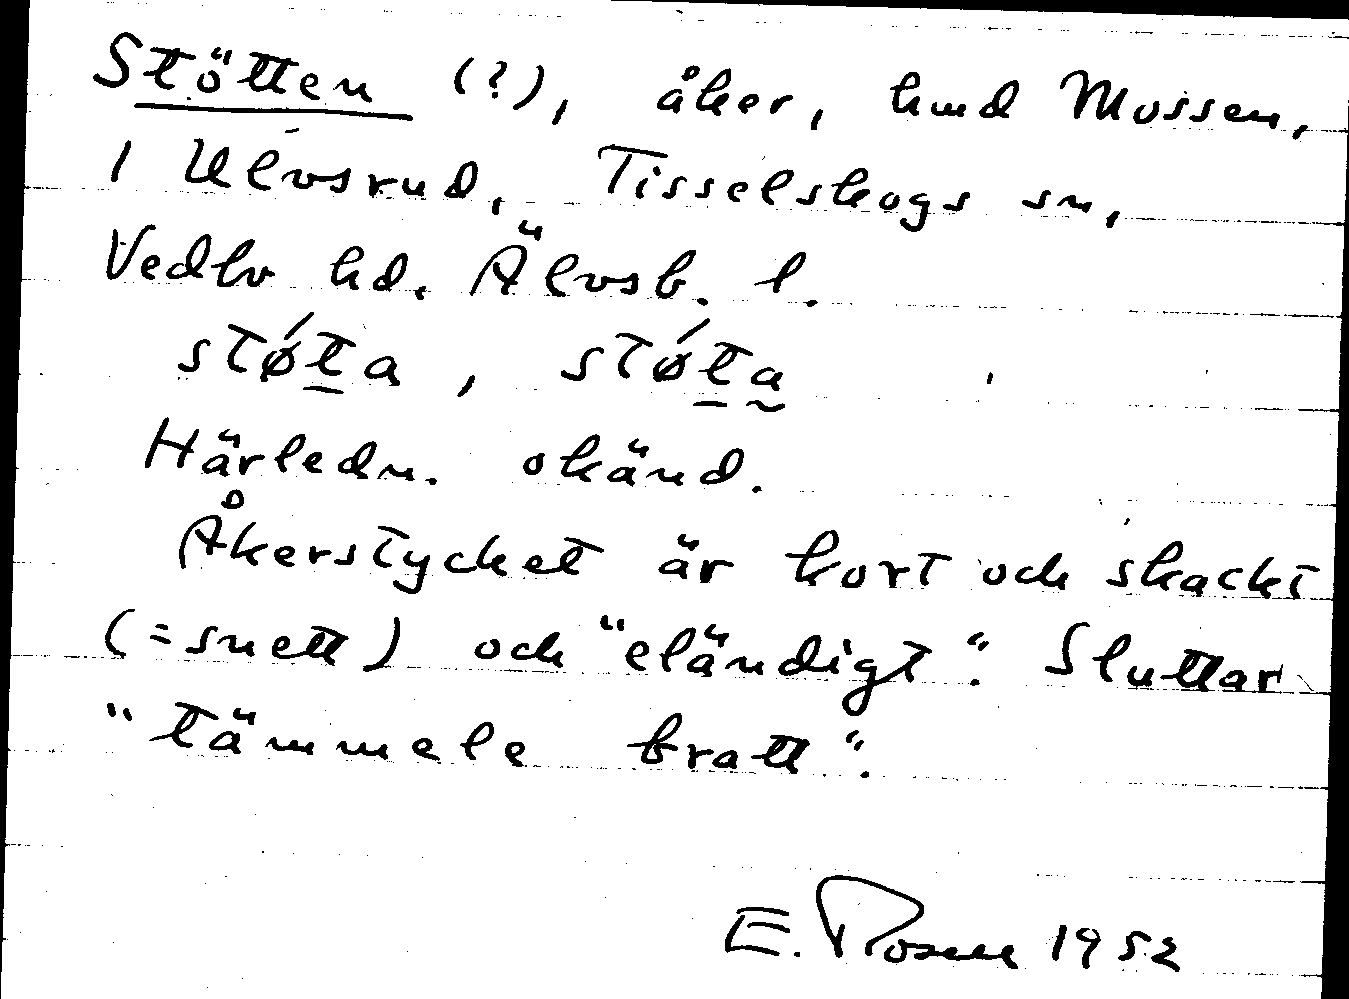 Stötten (?), åker, hmd Mossen,
1 Ulvsrud, Tisselskogs sn,
Vedbo hd. Älvsb. l.
stǿt̲a , stǿt̲a̰
Härledn. okänd.
Åkerstycket är kort och skackt
(=snett) och "eländigt". Sluttar
"tämmele bratt".
E. Rosell 1952